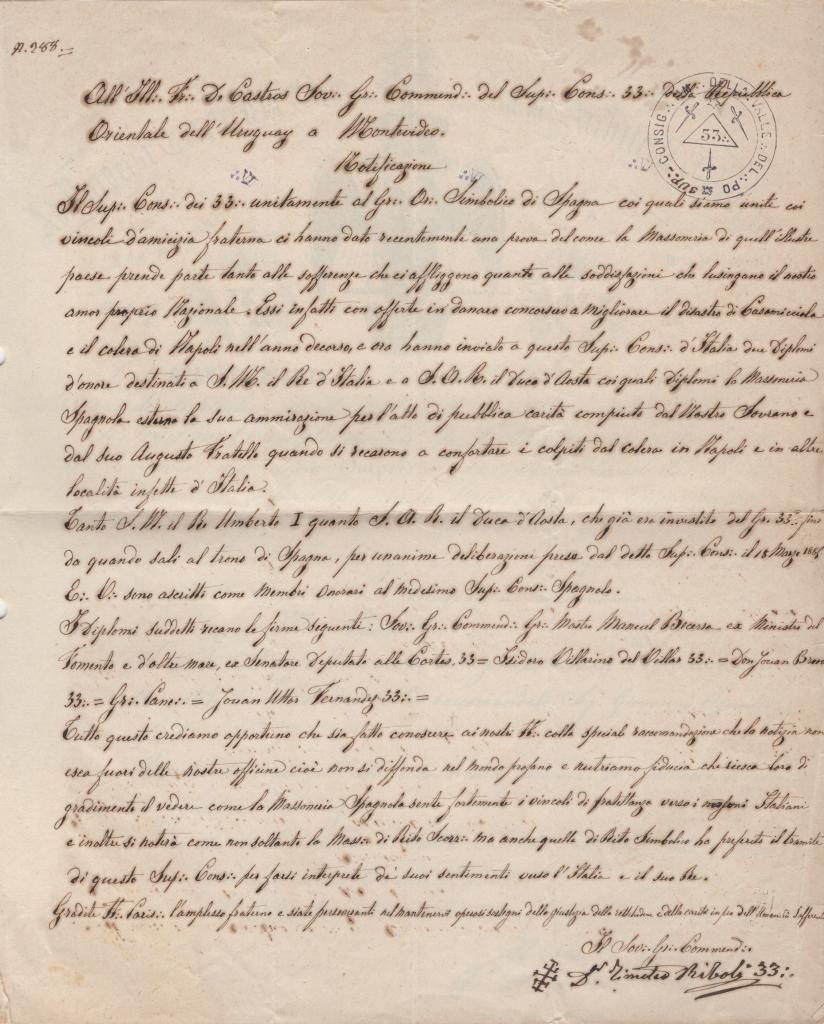 N. 288.=
SUP∴ CONSIG∴ DELLA VALLE∴ DEL∴ PO
33∴
All'Ill∴ Fr∴ De Castros Sov∴ Gr∴ Commend∴ del Sup∴ Cons∴ 33∴ della Repubblica
Orientale dell'Uruguay a Montevideo.
Notificazione
Il Sup∴ Cons∴ dei 33∴ unitamente al Gr∴ Or∴ Simbolico di Spagna coi quali siamo uniti coi
vincoli d'amicizia fraterna ci hanno dato recentemente una prova del come la Massoneria di quell'illustre
paese prende parte tanto alle sofferenze che ci affliggono quanto alle soddisfazioni che lusingano il nostro
amor proprio Nazionale. Essi infatti con offerte in danaro concorsero a migliorare il disastro di Casamicciola
e il colera di Napoli nell'anno decorso, e ora hanno inviato a questo Sup∴ Cons∴ d'Italia due Diplomi
d'onore destinati a S. M. il Re d'Italia e a S. A. R. il Duca d'Aosta coi quali Diplomi la Massoneria
Spagnola esterna la sua ammirazione per l'atto di pubblica carità compiuto dal Nostro Sovrano e
dal suo Augusto Fratello quando si recarono a confortare i colpiti dal colera in Napoli e in altre
località infette d'Italia.
Tanto S. M. il Re Umberto I quanto S. A. R. il Duca d'Aosta, che già era investito del Gr∴ 33∴ fino
da quando salì al trono di Spagna, per unanime deliberazione presa dal detto Sup∴ Cons∴ il 15 Marzo 1885
E∴ V∴ sono ascritti come Membri Onorari al medesimo Sup∴ Cons∴ Spagnolo.
I Diplomi suddetti recano le firme seguenti: Sov∴ Gr∴ Commend∴ Gr∴ Mastro Manuel Becerra ex Ministro del
Fomento e d'oltre mare, ex Senatore Deputato alle Cortes, 33 = Isidoro Villarino del Villar 33∴ = Don Jouan
33∴ = Gr∴ Canc∴ = Jouan Uttor Fernandez 33∴ =
Tutto questo crediamo opportuno che sia fatto conoscere ai nostri FF∴ colla special raccomandazione che la notizia non
esca fuori delle nostre officine cioè non si diffonda nel mondo profano e nutriamo fiducia che riesca loro di
gradimento il vedere come la Massoneria Spagnola sente fortemente i vincoli di fratellanza verso i Italiani
e inoltre si noterà come non soltanto la Mass∴ di Rito Scozz∴ ma anche quella di Rito Simbolico ha preferito il tramite
di questo Sup∴ Cons∴ per farsi interprete de' suoi sentimenti verso l'Italia e il suo Re.
Gradite FF∴ Cariss∴ l'amplesso fraterno e siate perseveranti nel mantenervi operosi sostegni della giustizia della rettitudine e della carità in pro dell'Umanità Sofferente
Il Sov∴ Gr∴ Commend∴
Dr. Timoteo Riboli 33∴